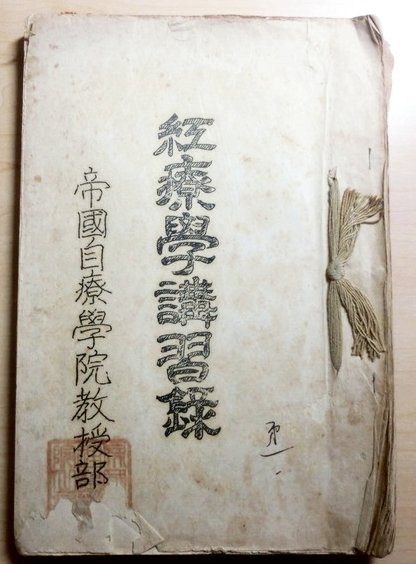 紅療學講習錄
帝國自療學院教授部